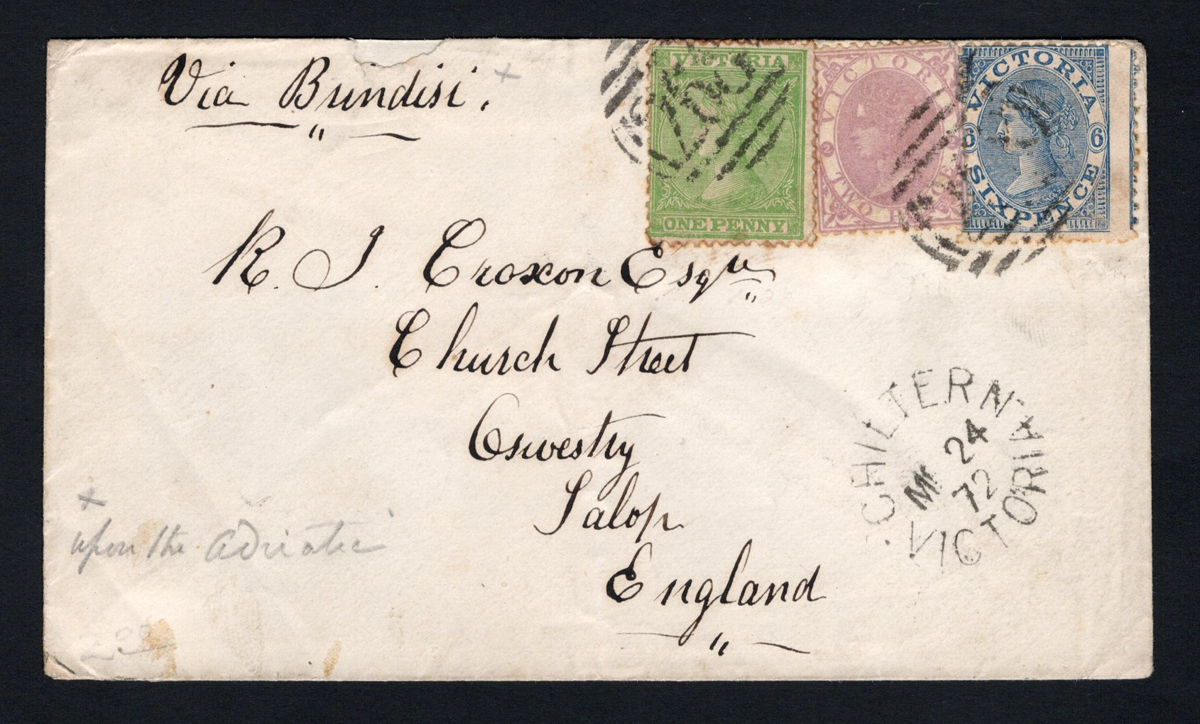 Via Brindisi.
VICTORIA
ONE PENNY
VICTORIA
TWO PENCE
VICTORIA
6 6
SIXPENCE
R. J. Croxon Esqre
Church Street
Oswestry
Salop
England
CHILTERN
24
72
VICTORIA
x
x
upon the Adriatic